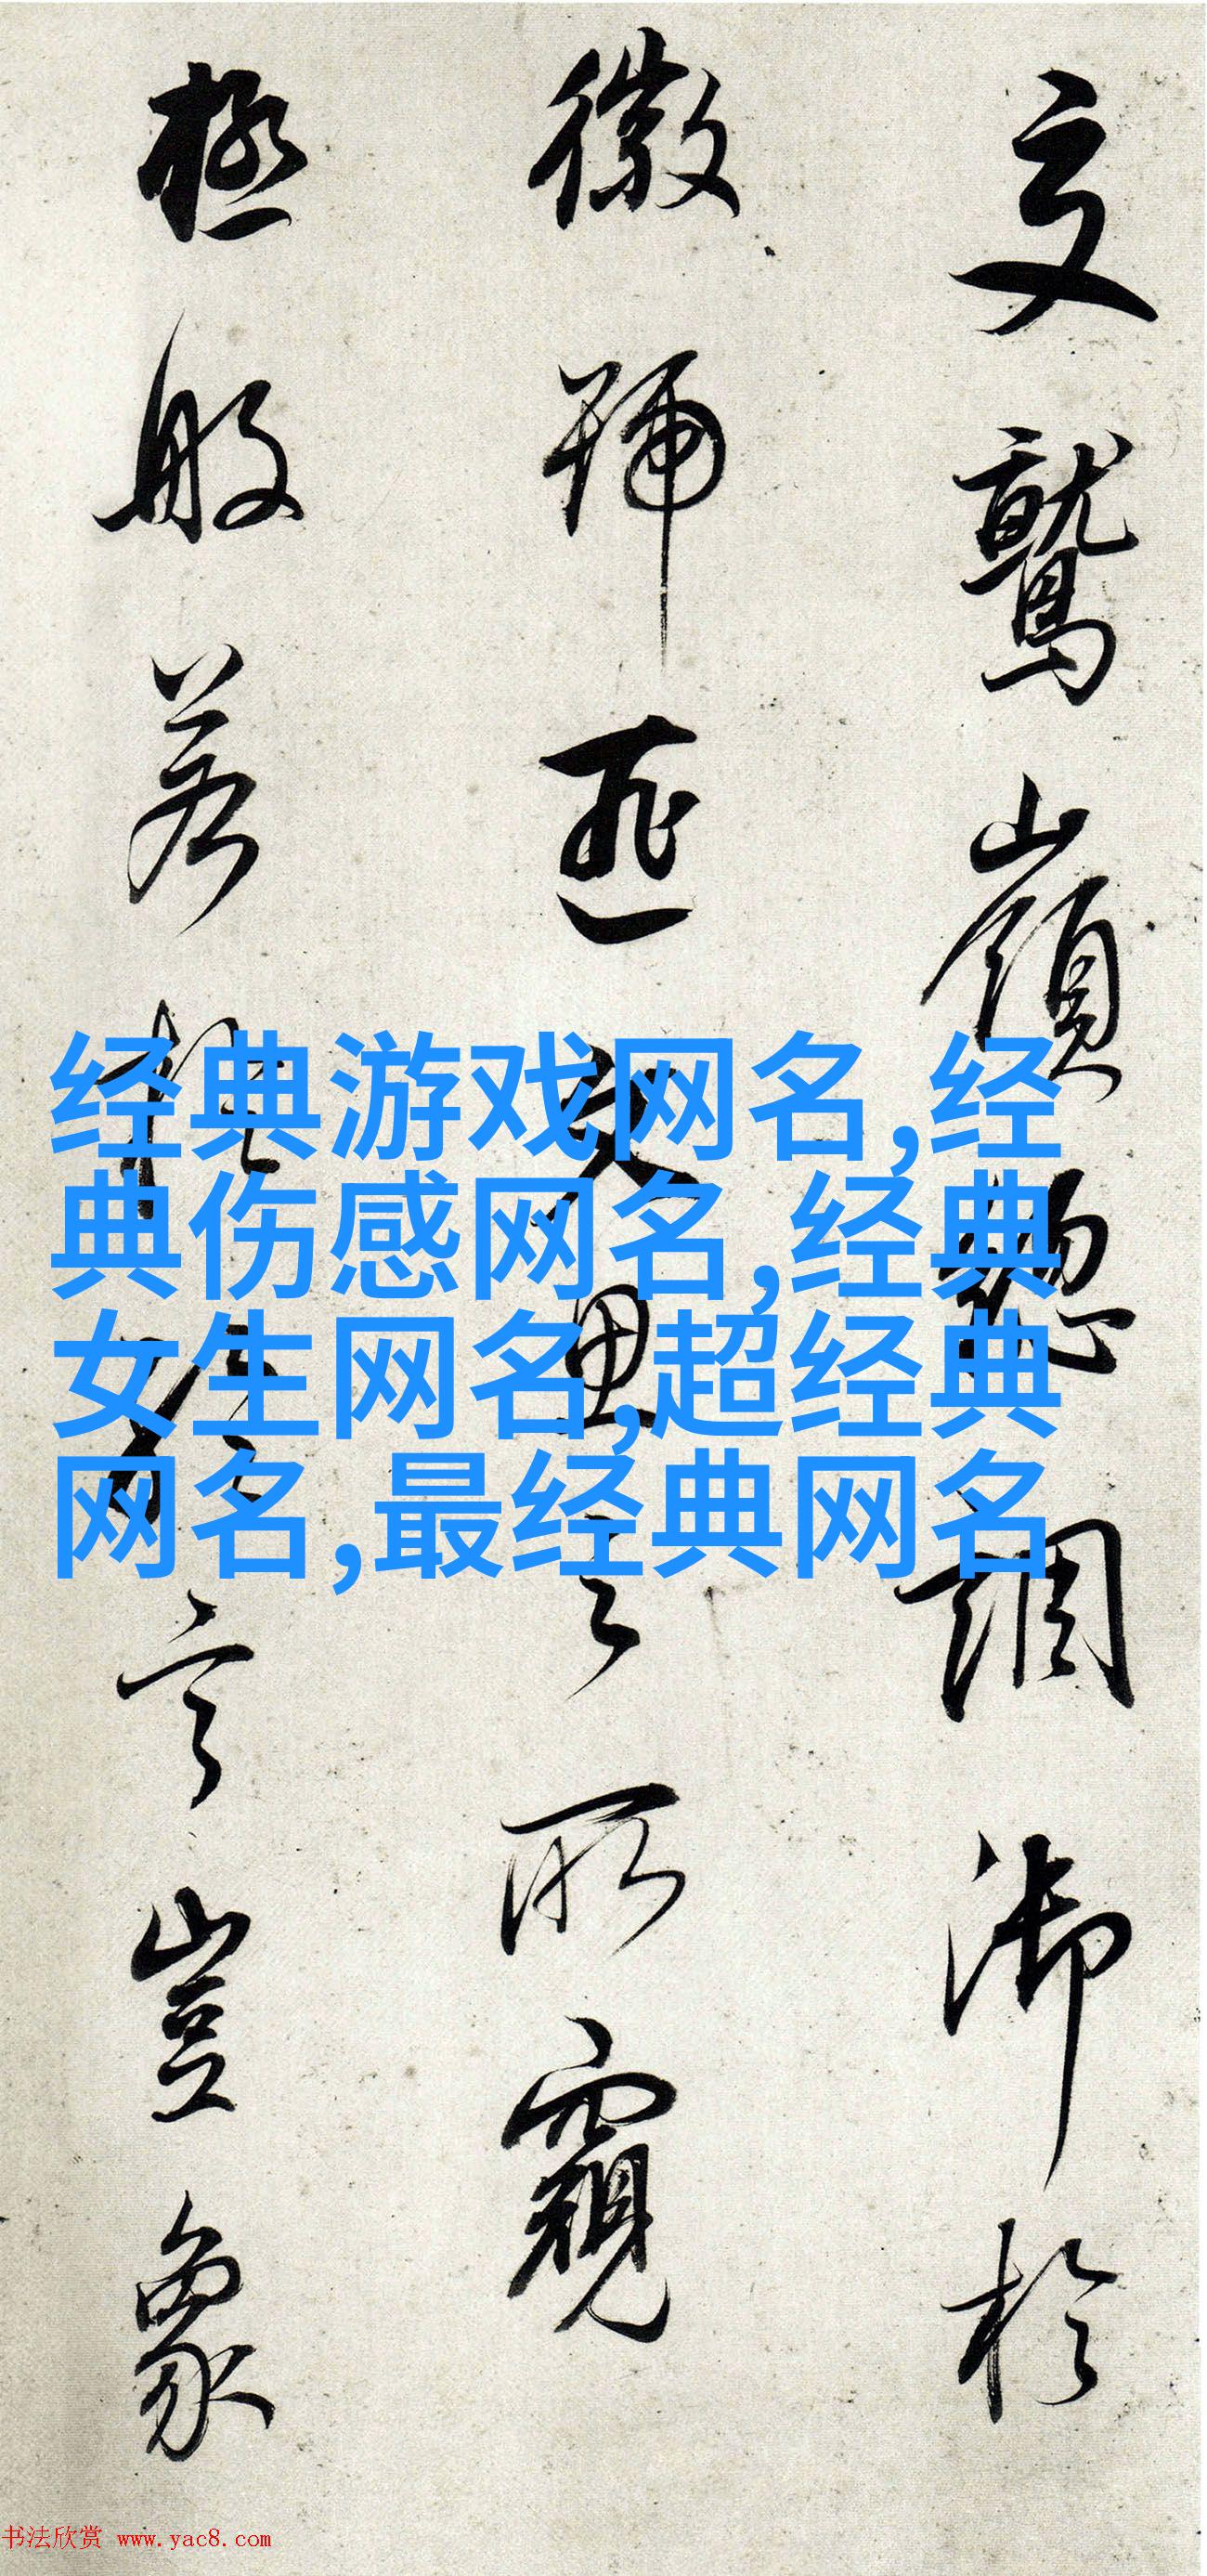 文鷲嶺聽調御於
徽號匪文思之所窺
極般若權實之旨豈象
经典游戏网名,经
典伤感网名,经典
女生网名,超经典
网名,最经典网名
书法欣赏 www.yac8.com